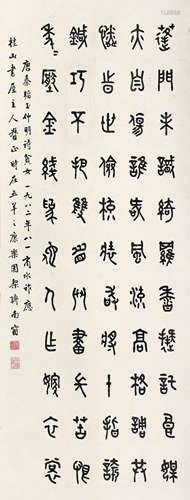 蓬門未識綺羅香擬託良媒
益自傷誰愛風流高格調共
憐時世儉梳妝敢將十指誇
鍼巧不把雙眉鬥畫長苦恨
年年壓金綫為他人作嫁衣裳
唐秦韜玉仲明詩貧女 一九八二年八月商承祚應
桂山書屋主人哲正時在五羊之康樂園契齋南窗